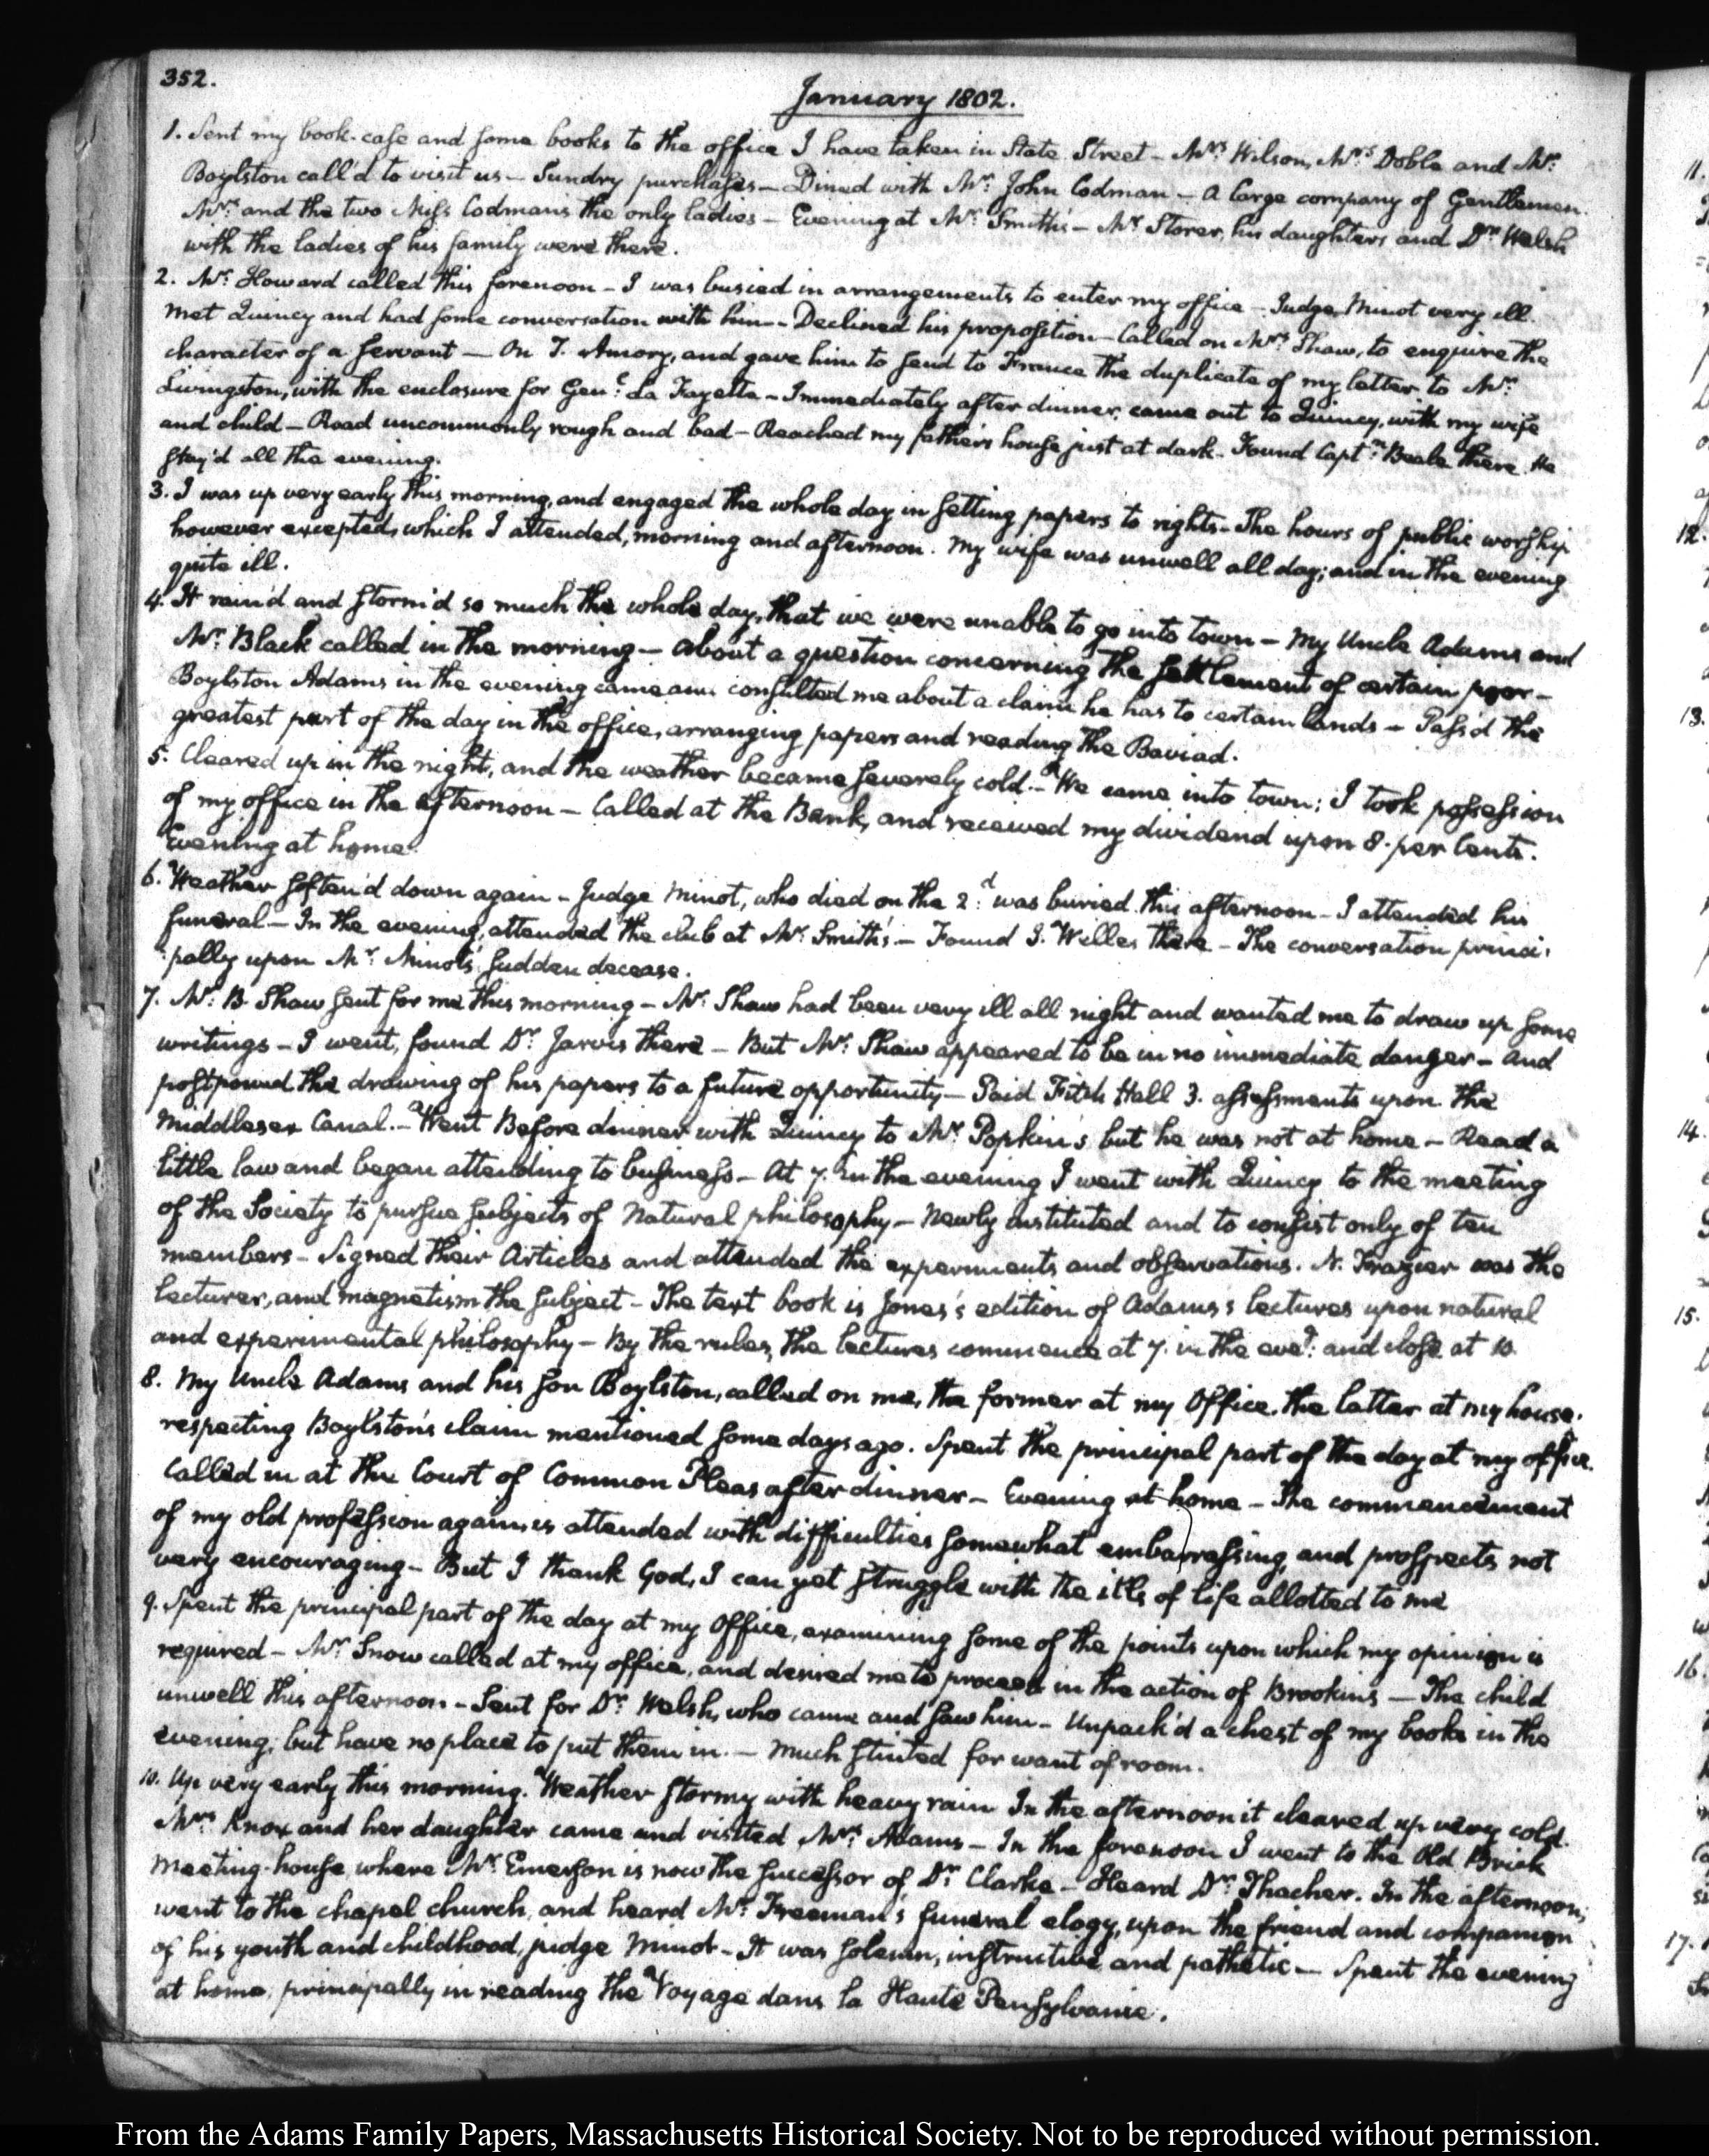 352.
January 1802.
1. Sent my book-case and some books to the office I have taken in State Street - Mrs. Wilson, Mrs. Doble and Mr.
Boylston call'd to visit us - Sundry purchases - Dined with Mr. John Codman - A large company of Gentlemen.
Mrs. and the two Miss Codmans the only ladies - Evening at Mr. Smith's - Mr. Storer, his daughters and Dr. Welsh
with the ladies of his family were there.
2. Mr. Howard called this forenoon - I was busied in arrangements to enter my office - Judge Minot very ill.
Met Quincy and had some conversation with him - Declined his proposition - Called on Mrs. Shaw, to enquire the
character of a servant - On J. Amory, and gave him to send to France the duplicate of my letter to Mr.
Livingston, with the enclosure for Genl. La Fayette - Immediately after dinner, came out to Quincy, with my wife
and child - Road uncommonly rough and bad - Reached my father's house just at dark - Found Captn. Beale there. He
stay'd all the evening.
3. I was up very early this morning, and engaged the whole day in setting papers to rights - The hours of public worship
however excepted, which I attended, morning and afternoon. My wife was unwell all day; and in the evening
quite ill.
4. It rain'd and storm'd so much the whole day, that we were unable to go into town - My Uncle Adams and
Mr. Black called in the morning - about a question concerning the settlement of certain poor -
Boylston Adams in the evening came and consulted me about a claim he has to certain lands - Pass'd the
greatest part of the day in the office, arranging papers and reading the Baviad.
5. Cleared up in the night, and the weather became severely cold. - We came into town; I took possession
of my office in the afternoon - Called at the Bank, and received my dividend upon 8. per Cents.
Evening at home.
6. Weather soften'd down again - Judge Minot, who died on the 2d: was buried this afternoon - I attended his
funeral - In the evening, attended the club at Mr. Smith's - Found S. Welles there - The conversation princi:
:pally upon Mr. Minot's sudden decease.
7. Mr. B. Shaw sent for me this morning - Mr. Shaw had been very ill all night and wanted me to draw up some
writings - I went, found Dr. Jarvis there - But Mr. Shaw appeared to be in no immediate danger - and
postponed the drawing of his papers to a future opportunity - Paid Fitch Hall 3. assessments upon the
Middlesex Canal. - Went Before dinner with Quincy to Mr. Popkin's but he was not at home - Read a
little law and began attending to business - At 7. in the evening I went with Quincy to the meeting
of the Society to pursue subjects of Natural philosophy - Newly instituted and to consist only of ten
members - Signed their Articles and attended the experiments and observations. N. Frazier was the
lecturer, and magnetism the subject - The text book is Jones's edition of Adams's lectures upon natural
and experimental philosophy - By the rules, the lectures commence at 7. in the eveg: and close at 10.
8. My Uncle Adams and his son Boylston, called on me, the former at my Office, the latter at my house.
respecting Boylston's claim mentioned some days ago. Spent the principal part of the day at my office.
Called in at the Court of Common Pleas after dinner - Evening at home - The commencement
of my old profession again, is attended with difficulties somewhat embarrassing, and prospects not
very encouraging - But I thank God, I can yet struggle with the ills of life allotted to me
9. Spent the principal part of the day at my Office, examining some of the points upon which my opinion is
required - Mr. Snow called at my office, and desired me to proceed in the action of Brookins - The child
unwell this afternoon - Sent for Dr. Welsh, who came and saw him - Unpack'd a chest of my books in the
evening; but have no place to put them in. - Much stinted for want of room.
10. Up very early this morning. Weather stormy with heavy rain In the afternoon it cleared up very cold.
Mrs. Knox and her daughter came and visited Mrs. Adams - In the forenoon I went to the Old Brick
Meeting-house where Mr. Emerson is now the successor of Dr. Clarke - Heard Dr. Thacher. In the afternoon,
went to the chapel church, and heard Mr. Freeman's funeral elogy, upon the friend and companion
of his youth and childhood, judge Minot - It was solemn, instructive and pathetic - Spent the evening
at home, principally in reading the Voyage dans la Haute Pensylvanie.
11.
12.
13.
14.
15.
16.
17.
From the Adams Family Papers, Massachusetts Historical Society. Not to be reproduced without permission.